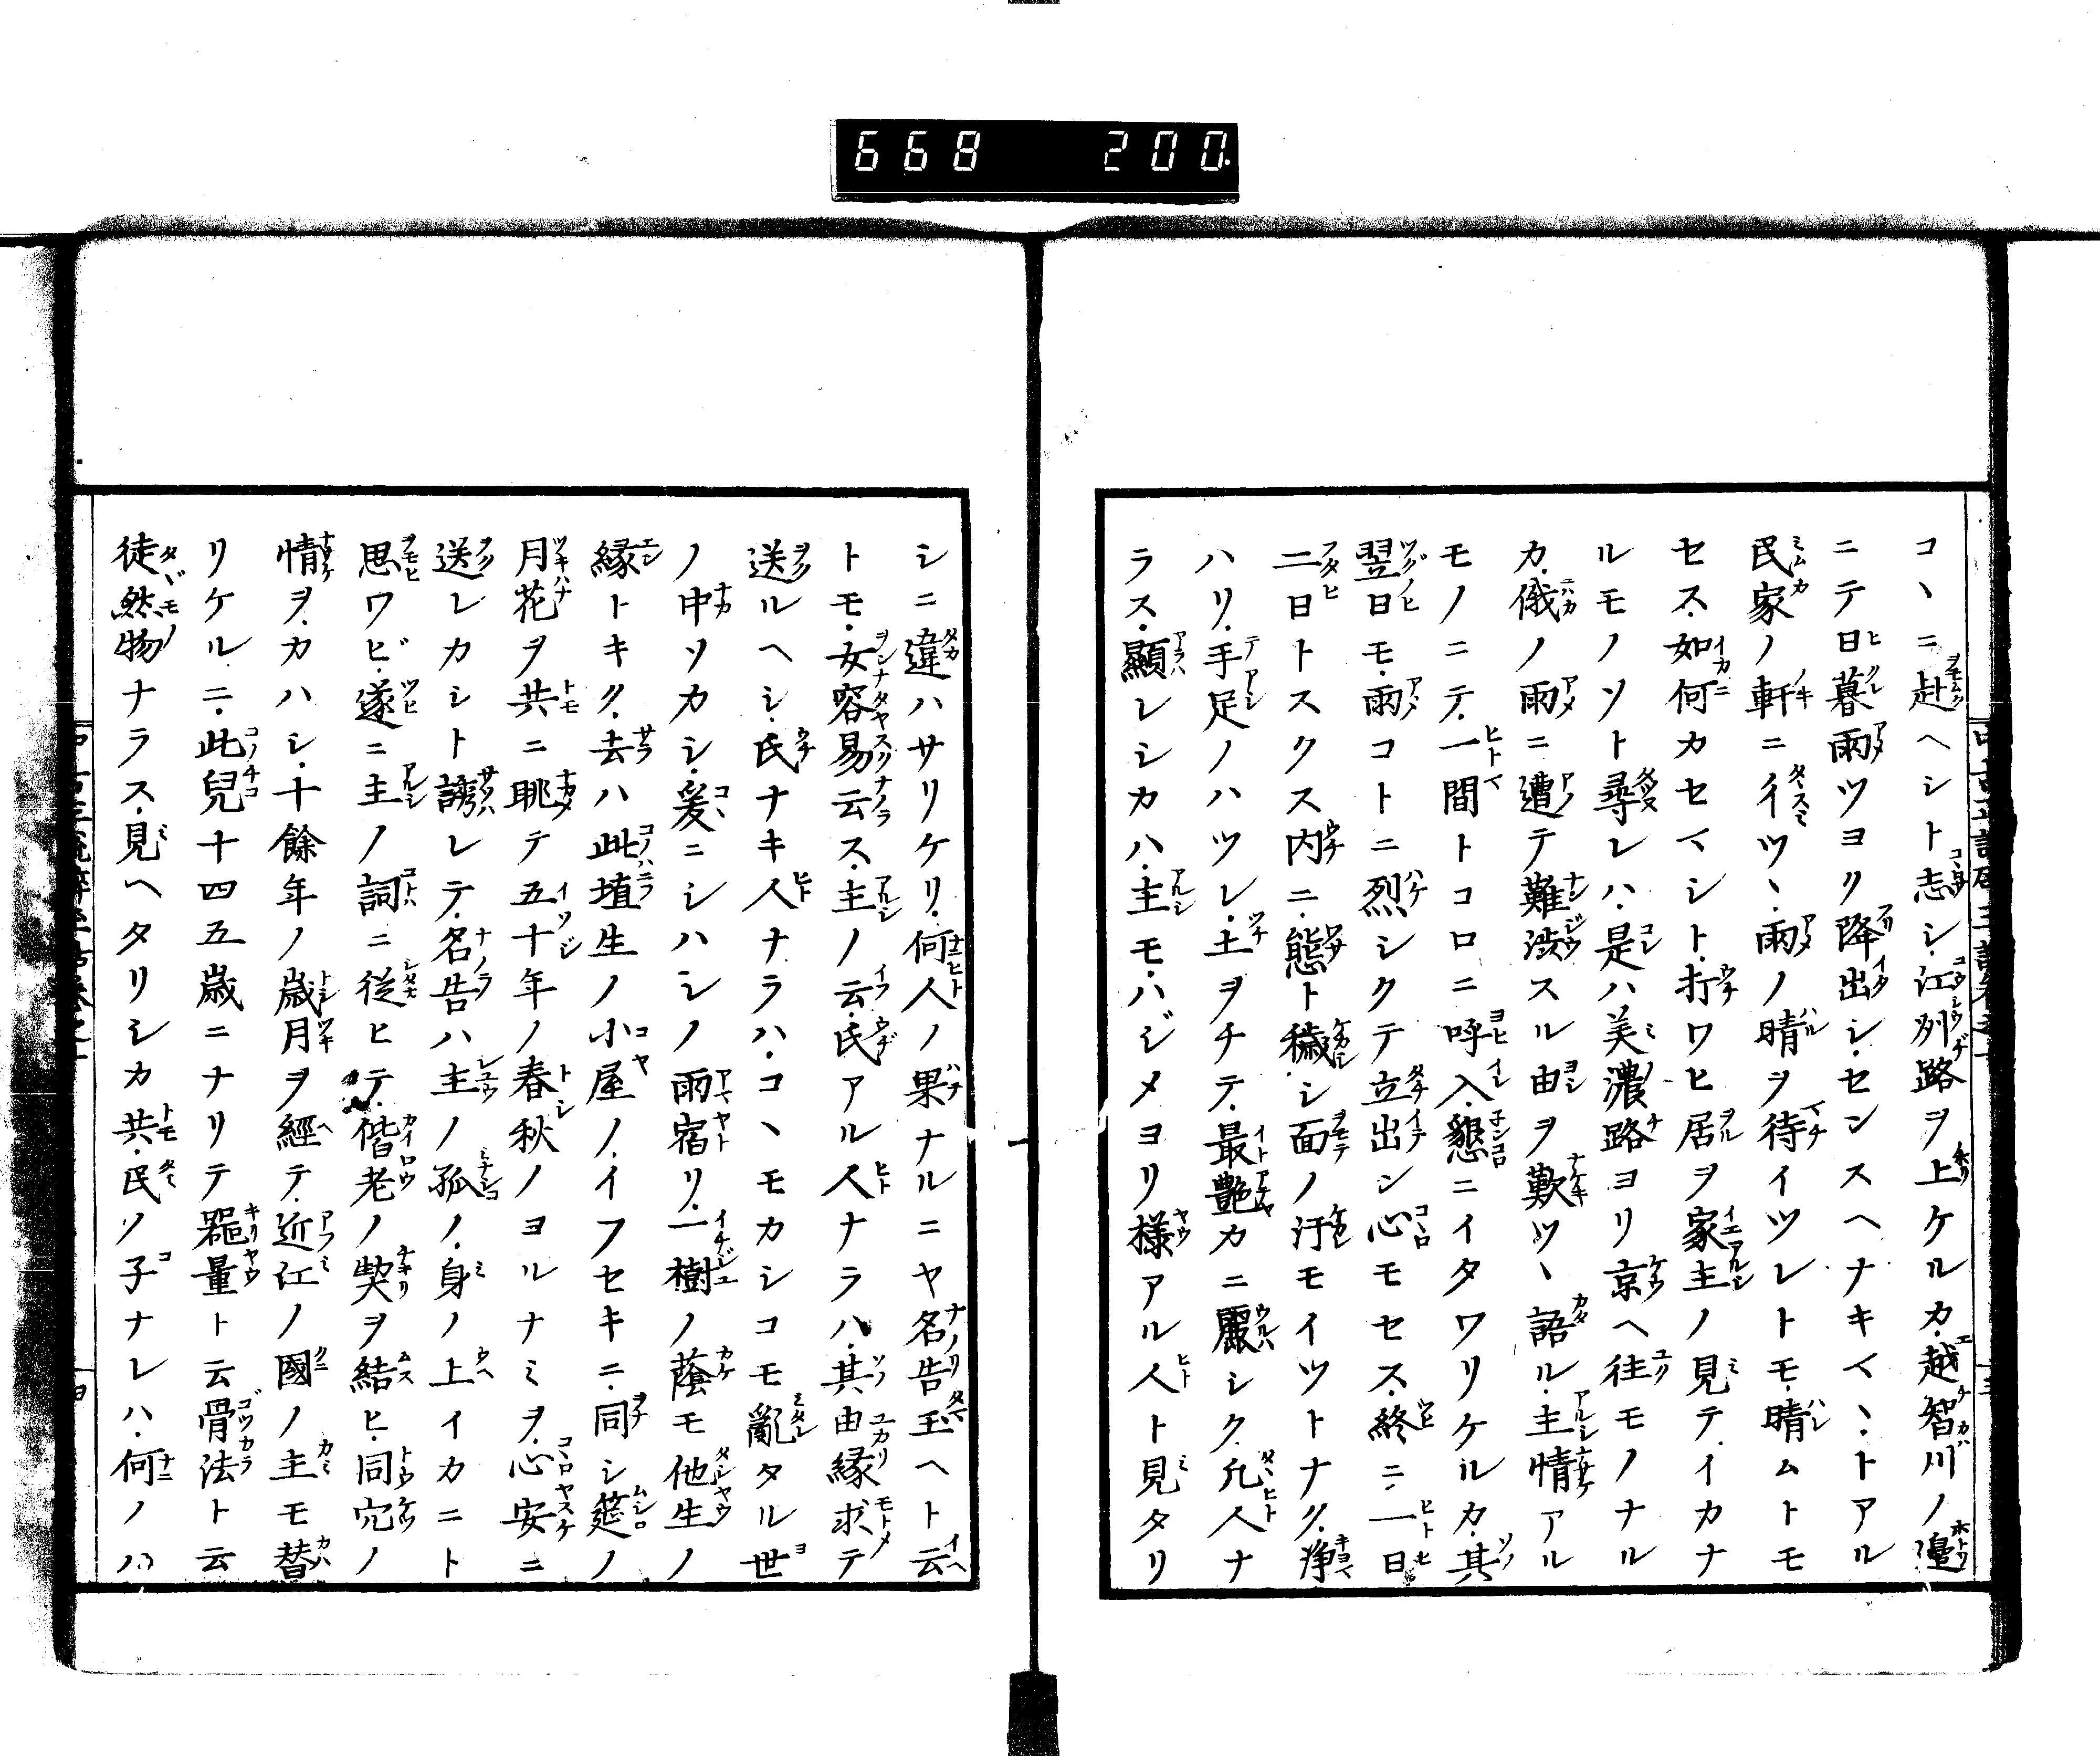 668 200.
コヽニ赴ヘシト志シ江列路ヲ上ケルカ越智川ノ邉
ニテ日暮雨ツヨリ降出シセンスヘナキヽトアル
民家ノ軒ニイツヽ雨ノ晴ヲ待イツレトモ晴ムトモ
セス如何カセマシト打ワヒ居ヲ家主ノ見テイカナ
ルモノソト尋レハ是ハ美濃路ヨリ京ヘ往モノナル
カ俄ノ雨ニ遭テ難渋スル由ヲ歎ツヽ語ル主情アル
モノニテ一間トコロニ呼入懇ニイタワリケルカ其
翌日モ雨コトニ烈シクテ立出ン心モセス終ニ一日
二日トスクス内ニ態ト穢シ面ノ汙モイツトナク浄
ハリ手足ノハツレ土ヲチテ最艶カニ麗シク凡人ナ
ラス顯レシカハ主モハジメヨリ様アル人ト見タリ
シニ違ハサリケリ何人ノ果ナルニヤ名告玉ヘト云
トモ女容易云ス主ノ云氏アル人ナラハ其由縁求テ
送ルヘシ氏ナキ人ナラハコヽモカシコモ亂タル世
ノ中ソカシ爰ニシハシノ雨宿リ一樹ノ蔭モ他生ノ
縁トキク去ハ此埴生ノ小屋ノイフセキニ同シ筵ノ
月花ヲ共ニ眺テ五十年ノ春秋ノヨルナミヲ心安ニ
送レカシト誘レテ名告ハ主ノ孤ノ身ノ上イカニト
思ワビ遂ニ主ノ詞ニ従ヒテ偕老ノ契ヲ結ヒ同穴ノ
情ヲカハシ十餘年ノ歳月ヲ經テ近江ノ國ノ主モ替
リケルニ此兒十四五歳ニナリテ器量ト云骨法ト云
徒然物ナラス見ヘタリシカ共民ソ子ナレハ何ノハ